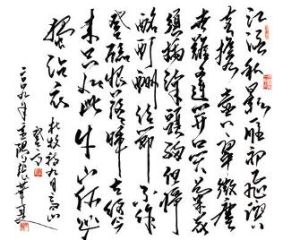 江涵秋影雁初飛與
客攜壺上翠微塵
世難逢開口笑菊花
須插滿頭歸但將
酩酊酬佳節不作
登臨恨落暉古往今
來只如此牛山何必
獨沾衣
杜牧詩九日齊山
登高
二〇〇九年重陽